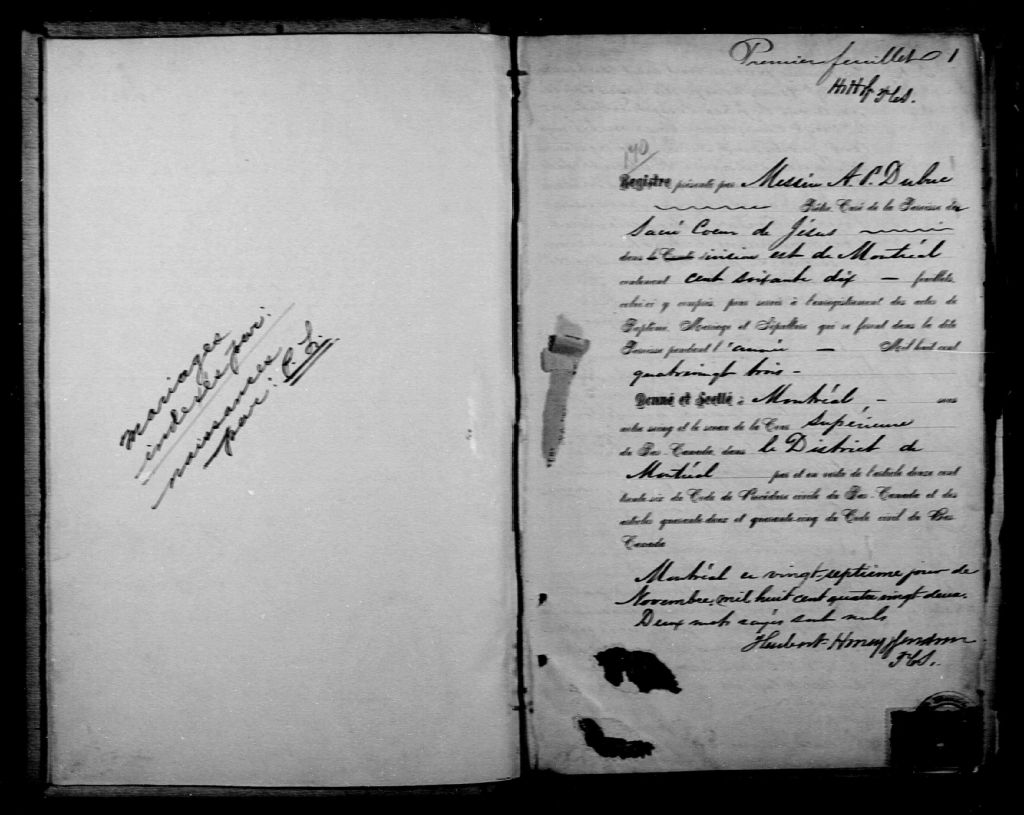 mariages
indexés par:
naissances
par: C. L.
Premier feuillet 1
HHH
190
Registre présenté par Messire A. P. Dubuc
Prêtre, Curé de la Paroisse du
Sacré Coeur de Jésus
dans la Comté division est de Montréal
contenant cent soixante dix — feuillets,
celui-ci y compris, pour servir à l'enregistrement des actes de
Baptême, Mariage et Sépulture qui se feront dans la dite
Paroisse pendant l'année — Mil huit cent
quatrevingt trois -
Donné et Scellé à Montréal — sous
notre seing et le sceau de la Cour Supérieure
du Bas-Canada, dans le District de
Montréal pas et en vertu de l'article douze cent
trente-six du Code de Procédure civile du Bas-Canada et des
articles quarante-deux et quarante-cinq du Code civil du Bas
Canada
Montréal ce vingt-septième jour de
Novembre, mil huit cent quatre vingt-deux.
Deux mots rayés sont nuls
Hubert Honey